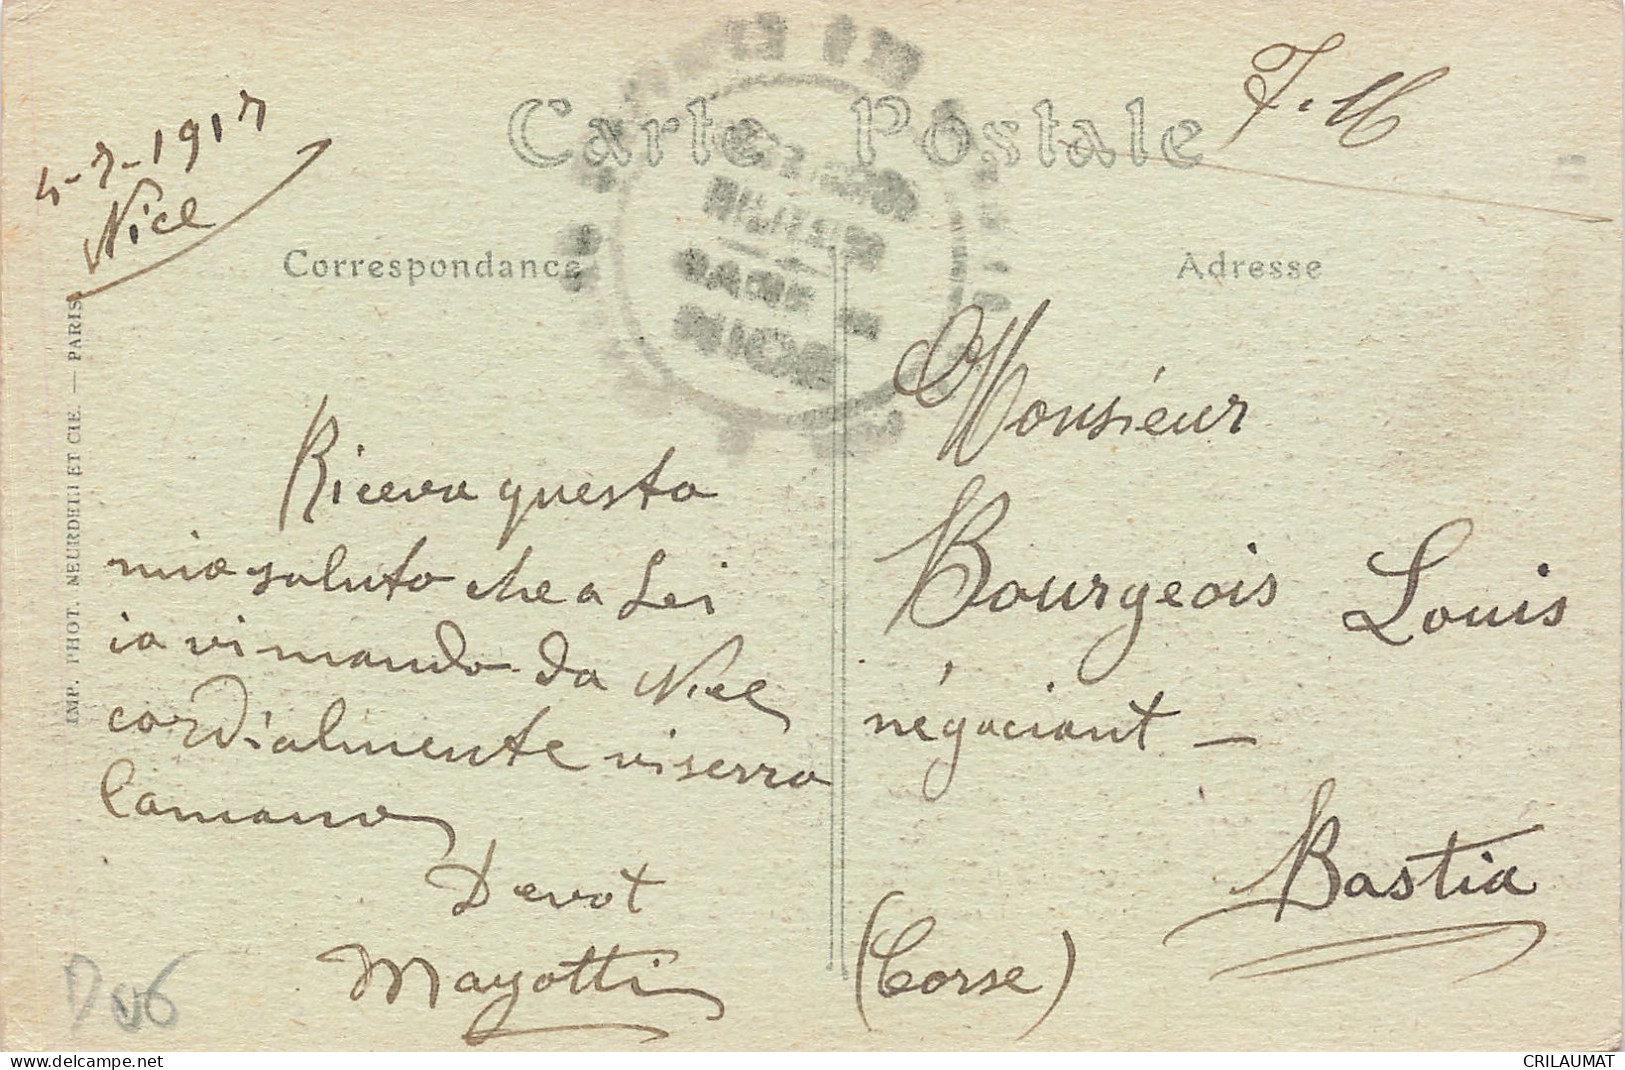 Carte Postale
F. M
4-7-1917
Nice
Correspondance
Adresse
NICE
IMP. PHOT. NEURDEIN ET CIE. — PARIS
Riceva questa
mio saluto che a Lei
io vi mando da Nice
cordialmente vi serro
la mano
Devot
Mayotti
Monsieur
Bourgeois Louis
négociant —
Bastia
(Corse)
D 06
https://www.delcampe.net
CRILAUMAT